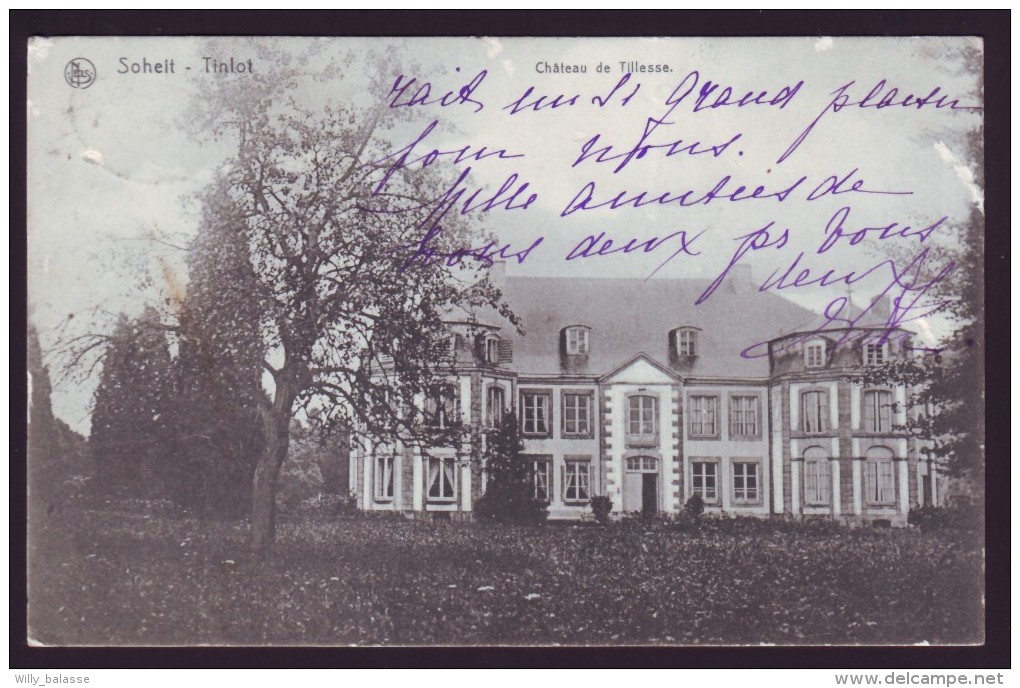 Nels
Soheit - Tinlot
Château de Tillesse.
rait un si grand plaisir
pour nous.
Mille amitiés de
nous deux pr vous
deux
Willy_balasse
www.delcampe.net